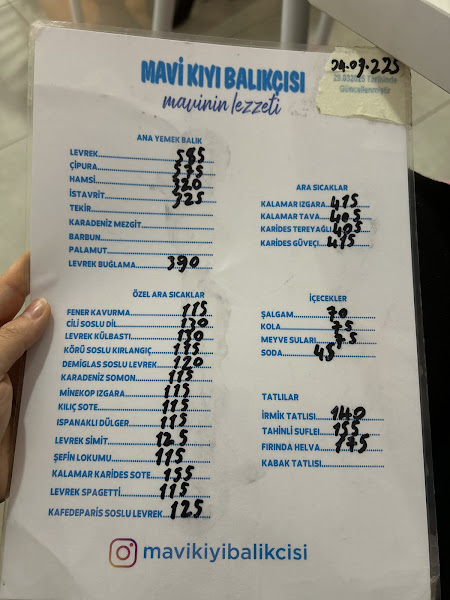 MAVİ KIYI BALIKÇISI
mavinin lezzeti
Güncellenmiştir
ANA YEMEK BALIK
LEVREK
ÇİPURA 575
HAMSİ 320
İSTAVRİT 325
TEKİR
KARADENİZ MEZGİT
BARBUN
PALAMUT
LEVREK BUĞLAMA 390
ARA SICAKLAR
KALAMAR IZGARA 415
KALAMAR TAVA 405
KARİDES TEREYAĞLI 405
KARİDES GÜVEÇ 415
ÖZEL ARA SICAKLAR
FENER KAVURMA 115
CİLİ SOSLU DİL 130
LEVREK KÜLBASTI
KÖRÜ SOSLU KIRLANGIÇ 175
DEMİGLAS SOSLU LEVREK 120
KARADENİZ SOMON 115
MİNEKOP IZGARA 115
KILIÇ SOTE 115
ISPANAKLI DÜLGER 115
LEVREK SİMİT 125
ŞEFİN LOKUMU 115
KALAMAR KARİDES SOTE 155
LEVREK SPAGETTİ 115
KAFEDEPARİS SOSLU LEVREK 125
İÇECEKLER
ŞALGAM 70
KOLA 75
MEYVE SULARI 75
SODA 45
TATLILAR
İRMİK TATLISI 140
TAHİNLİ SUFLE 155
FIRINDA HELVA 175
KABAK TATLISI
mavikiyibalikcisi